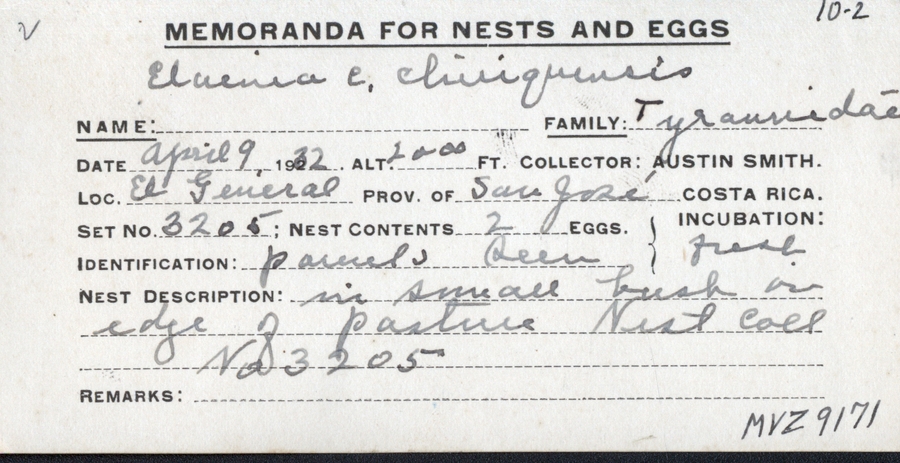 10-2
MEMORANDA FOR NESTS AND EGGS
Elaenia c. chiriquensis
NAME: FAMILY: Tyrannidae
DATE April 9, 1932. ALT. 2000 FT. COLLECTOR: AUSTIN SMITH.
LOC. El General PROV. OF San José COSTA RICA.
SET NO. 3205; NEST CONTENTS 2 EGGS. INCUBATION:
IDENTIFICATION: parents seen fresh
NEST DESCRIPTION: in small bush on
edge of pasture Nest coll
No 3205
REMARKS:
MVZ 9171